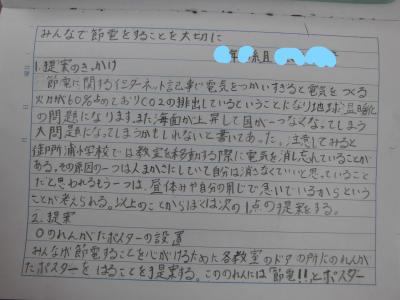 みんなで節電をすることを大切に
年 組
1.提案のきっかけ
節電に関するインターネット記事で電気をつかいすぎると電気をつくる
火力が60%あっておりCO2の排出しているということになり地球温暖化
の問題になります。また海面が上昇して国が一つなくなってしまう
大問題になってしまうかもしれないと書いてあった。注意してみると
御門浦小学校では教室を移動する際に電気を消し忘れていることが
ある。その原因の一つは人まかせにしていて自分は消さなくていいと思っていること
だと思われるもう一つは、昼休みや自分の用じで急いでいるからという
ことが考えられる。以上のことからぼくは次の1点の提案をする。
2.提案
○のれんがたポスターの設置
みんなが節電することを心がけるために各教室のドアの所にのれんが
たポスターをはることを提案する。こののれんには"節電!!とポスター